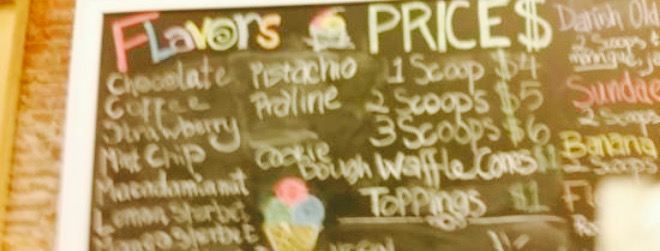 Flavors
Chocolate
Coffee
Strawberry
Mint Chip
Macadamia nut
Lemon Sherbet
Mango Sherbet
Pistachio
Praline
Cookie
Dough
PRICE$
1 Scoop $4
2 Scoops $5
3 Scoops $6
Waffle Cones $1
Toppings $1
Danish Old
2 Scoops
Sundae
2 Scoops
Banana
Scoops